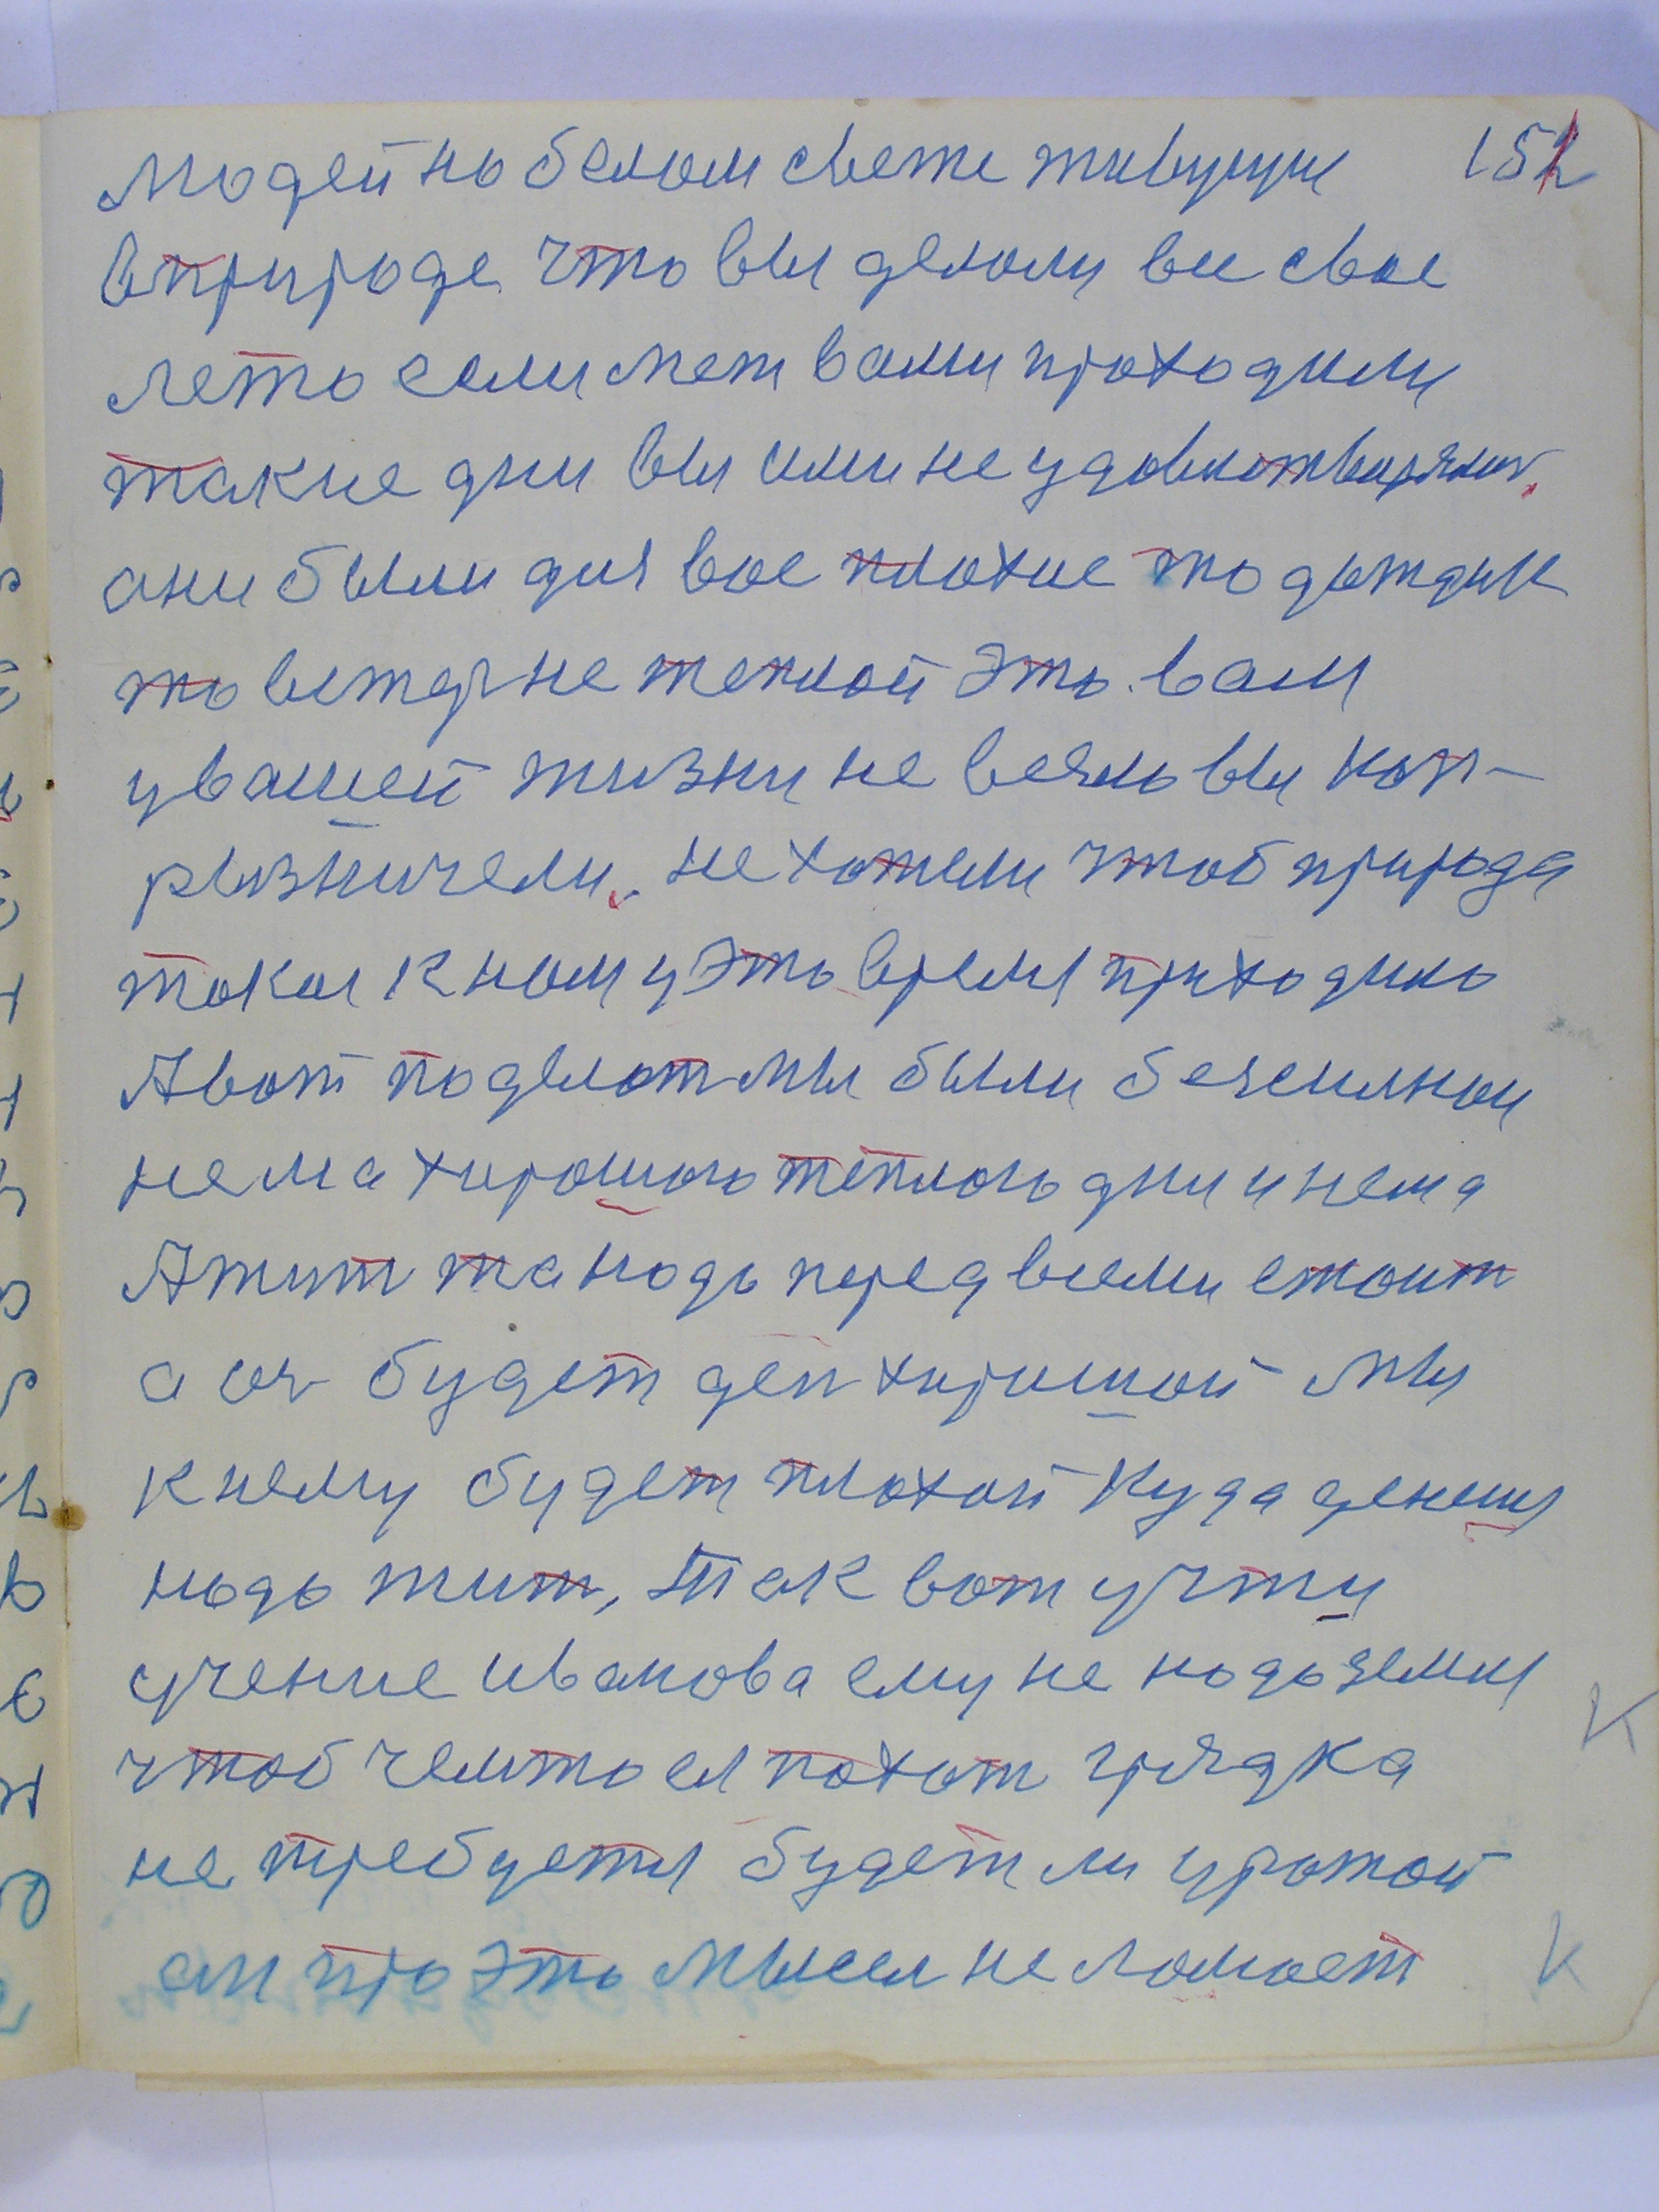 людей на белом свете живущих 152
вприроде что вы делали все свое
лето если меж вами проходили
такие дни вы ими не удовлотваряли
они были для вас плохие то дождик
то ветер не теплой это вам
у вашей жизни не веяло вы кап-
рызничели. не хотели чтоб природа
такая к ном у это время приходило
А вот поделат мы были безсилнои
нема хорошого теплого дни и нема
А жит та надо перед всеми стоит
а он будет ден хорошой мы
к нему будет плохой Куда денеш
надо жит, Так вот учти
учение иванова ему не надо земля
чтоб чемто ея пахат грядка
не требуетя будет ли урожай
он про это мысея не ломает
К
К